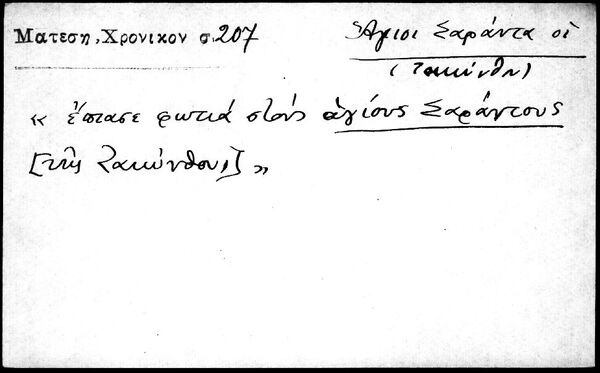 Ματεση, Χρονικον σ. 207
Ἅγιοι Σαράντα οἱ
(Ζακύνθου)
« ἔπιασε φωτιά στούς ἁγίους Σαράντους
[τῆς Ζακύνθου] »